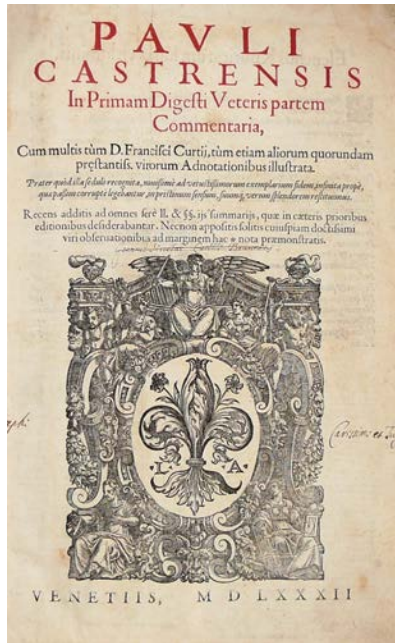 PAVLI
CASTRENSIS
In Primam Digesti Veteris partem
Commentaria,
Cum multis tùm D. Francisci Curtij, tùm etiam aliorum quorundam
pręstantiss. virorum Adnotationibus illustrata.
Præter quòd illa sedulò recognita, nouissimè ad vetustissimorum exemplarium fidem, infinita propè,
quæ passim corruptè legebantur, in pristinum sensum, suumq́; verum splendorem restituimus.
Recens additis ad omnes ferè ll. & §§. ijs summarijs, quæ in cæteris prioribus
editionibus desiderabantur. Necnon appositis solitis cuiuspiam doctissimi
viri obseruationibus ad marginem hac * nota præmonstratis.
L A
VENETIIS, M D LXXXII